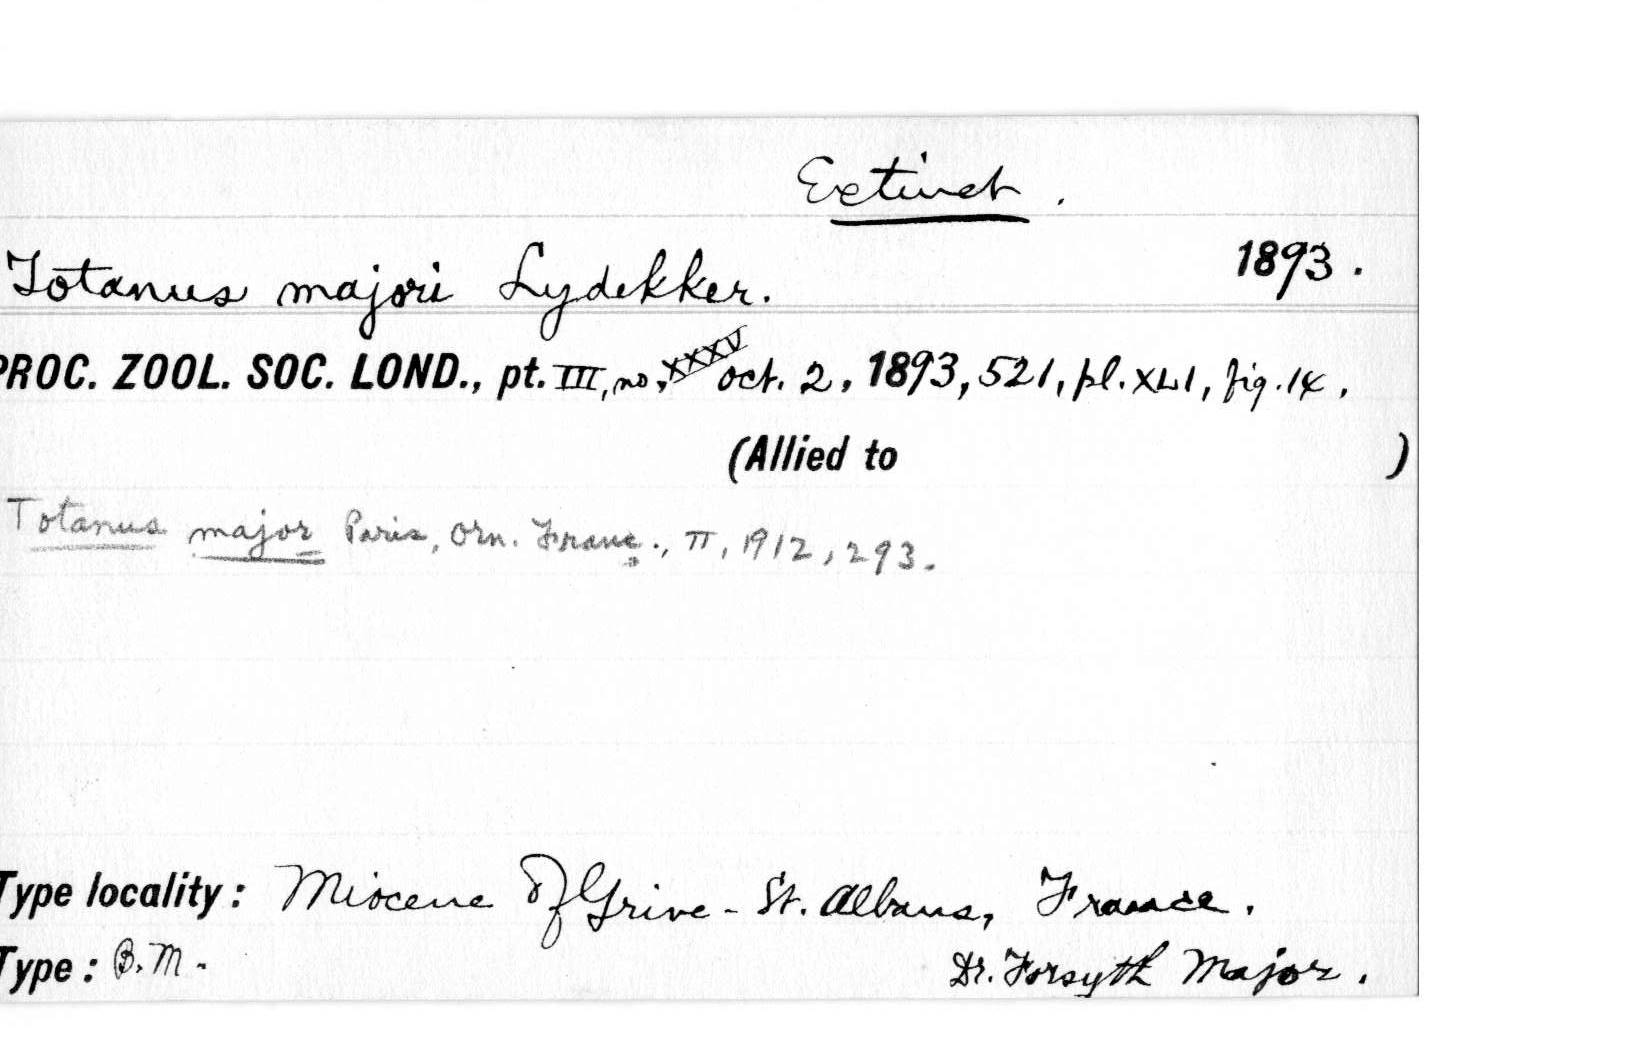 Extinct.
Totanus majori Lydekker. 1893.
PROC. ZOOL. SOC. LOND., pt. III, no, XXXV oct. 2, 1893, 521, pl. XLI, fig. 14.
(Allied to )
Totanus major Paris, Orn. Franç., II, 1912, 293.
Type locality: Miocene of Grive-St. Albans, France.
Type: B.M. Dr. Forsyth Major.